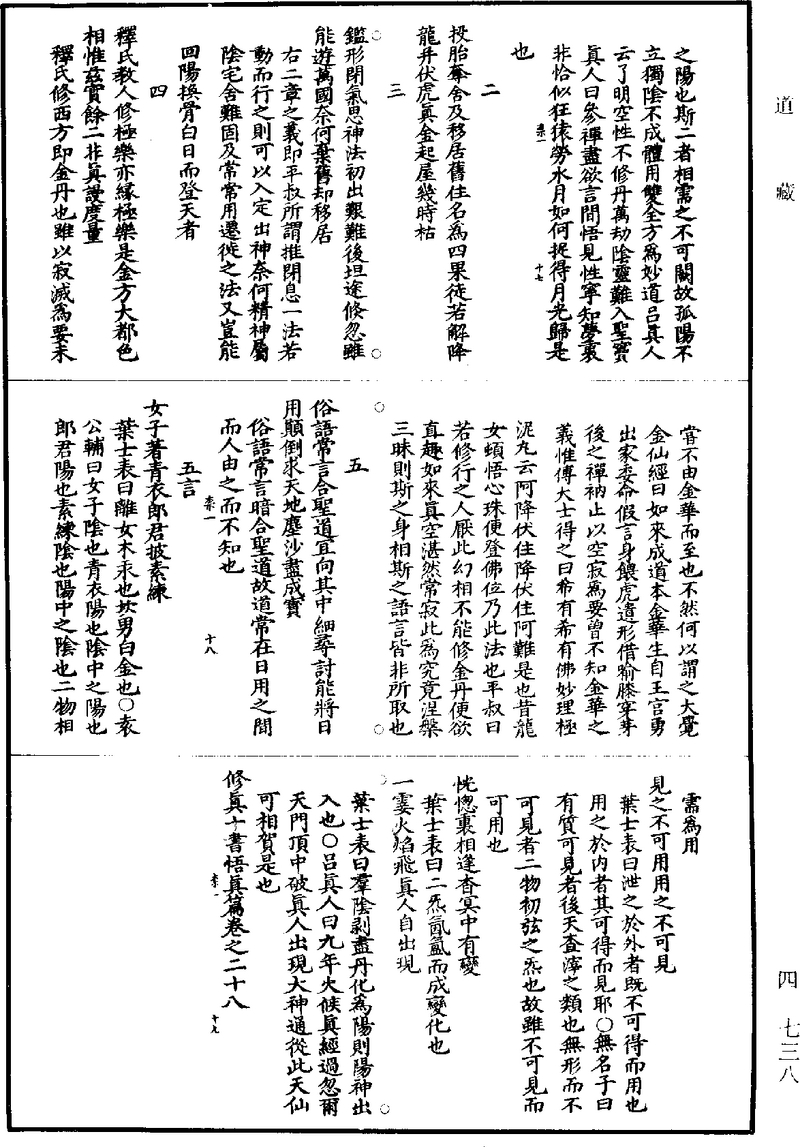 道藏
四 七三八
之陽也斯二者相需之不可闕故孤陽不
立獨陰不成體用雙全方爲妙道呂眞人
云了明空性不修丹萬劫陰靈難入聖竇
眞人曰參禪盡欲言間悟見性寧知夢裏
非恰似狂猿勞水月如何捉得月光歸是
柰一 十七
也
二
投胎奪舍及移居舊住名為四果徒若解降
龍并伏虎眞金起屋幾時枯
三
鑑形閉氣思神法初出艱難後坦途倏忽雖
能遊萬國奈何棄舊却移居
右二章之義即平叔所謂推閉息一法若
動而行之則可以入定出神奈何精神屬
陰宅舍難固及常常用遷徙之法又豈能
回陽換骨白日而登天者
四
釋氏教人修極樂亦緣極樂是金方大都色
相惟茲實餘二非眞謾度量
釋氏修西方即金丹也雖以寂滅爲要未
嘗不由金華而至也不然何以謂之大覺
金仙經曰如來成道本金華生自王宮勇
出家委命假言身餧虎遺形借喻膝穿芽
後之禪衲止以空寂爲要曾不知金華之
義惟傅大士得之曰希有希有佛妙理極
泥丸云阿降伏住降伏住阿難是也昔龍
女頓悟心珠便登佛位乃此法也平叔曰
若修行之人厭此幻相不能修金丹便欲
直趣如來眞空湛然常寂此爲究竟涅槃
三昧則斯之身相斯之語言皆非所取也
五
俗語常言合聖道宜向其中細尋討能將日
用顛倒求天地塵沙盡成寶
俗語常言暗合聖道故道常在日用之間
而人由之而不知也
柰一 十八
五言
女子著青衣郎君披素練
葉士表曰離女木汞也坎男白金也○袁
公輔曰女子陰也青衣陽也陰中之陽也
郎君陽也素練陰也陽中之陰也二物相
需為用
見之不可用用之不可見
葉士表曰泄之於外者既不可得而用也
用之於內者其可得而見耶○無名子曰
有質可見者後天查滓之類也無形而不
可見者二物初弦之炁也故雖不可見而
可用也
恍惚裏相逢杳冥中有變
葉士表曰二炁氤氳而成變化也
一霎火焰飛眞人自出現
葉士表曰羣陰剥盡丹化爲陽則陽神出
入也○呂眞人曰九年火候眞經過忽爾
天門頂中破眞人出現大神通從此天仙
可相賀是也
修眞十書悟眞篇卷之二十八
柰一 十九